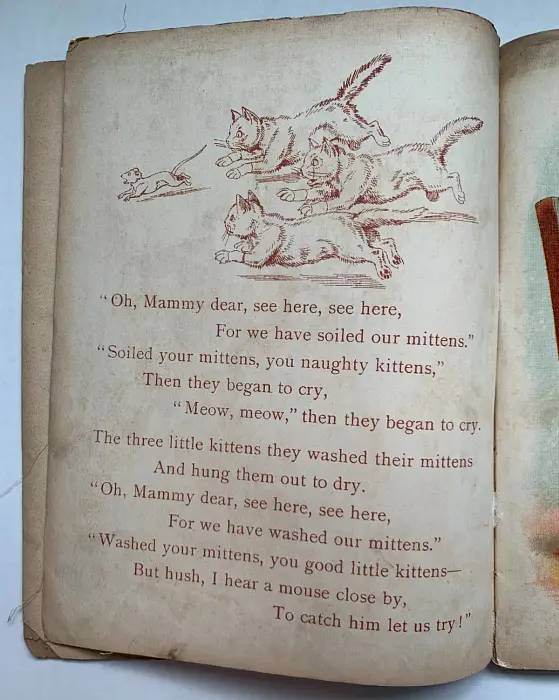 “Oh, Mammy dear, see here, see here,
For we have soiled our mittens.”
“Soiled your mittens, you naughty kittens,”
Then they began to cry,
“Meow, meow,” then they began to cry.
The three little kittens they washed their mittens
And hung them out to dry.
“Oh, Mammy dear, see here, see here,
For we have washed our mittens.”
“Washed your mittens, you good little kittens—
But hush, I hear a mouse close by,
To catch him let us try!”